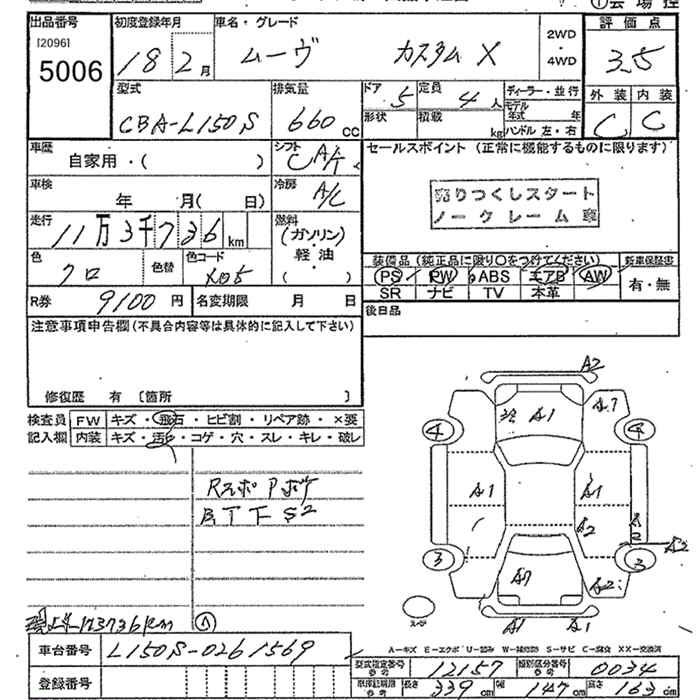 出品番号 初度登録年月 車名・グレード 評価点
[20961
5006 18 2月 ムーヴ カスタム X 2WD・4WD 3.5
型式 排気量 ドア 定員 ディーラー・並行 外装 内装
CBA-L150S 660 CC 5 4人 モデル年式 年 C C
形状 積載 kg ハンドル 左・右
車歴 シフト セールスポイント (正常に機能するものに限ります)
自家用・( ) CA/T
車検 冷房
年 月( 日) A/C 売りつくしスタート
ノークレーム車
走行 燃料
11万3千736km (ガソリン)
軽油
( )
色 色替 色コード 装備品 (純正品に限り○をつけてください) 新車保証書
クロ X05 PS PW ABS エアB AW 有・無
SR ナビ TV 本革
R券 9100円 名変期限 月 日 後日品
注意事項申告欄 (不具合内容等は具体的に記入して下さい)
修復歴 有 〔箇所 〕
検査員 FW キズ・飛石・ヒビ割・リペア跡・×要
記入欄 内装 キズ・汚れ・コゲ・穴・スレ・キレ・破レ
A2
A1 A7
4 4
A1 A1
A2
A2 A2
3 3
A7 A2
A1 A1
スペア
113736km
A-キズ E-エクボ U-凹み W-補修跡 S-サビ C-腐食 XX-交換済
車台番号 L150S-0261569
型式指定番号 参考 12157 類別区分番号 参考 0034
登録番号 車庫証明用 参考 長さ 339cm 幅 147cm 高さ 163cm